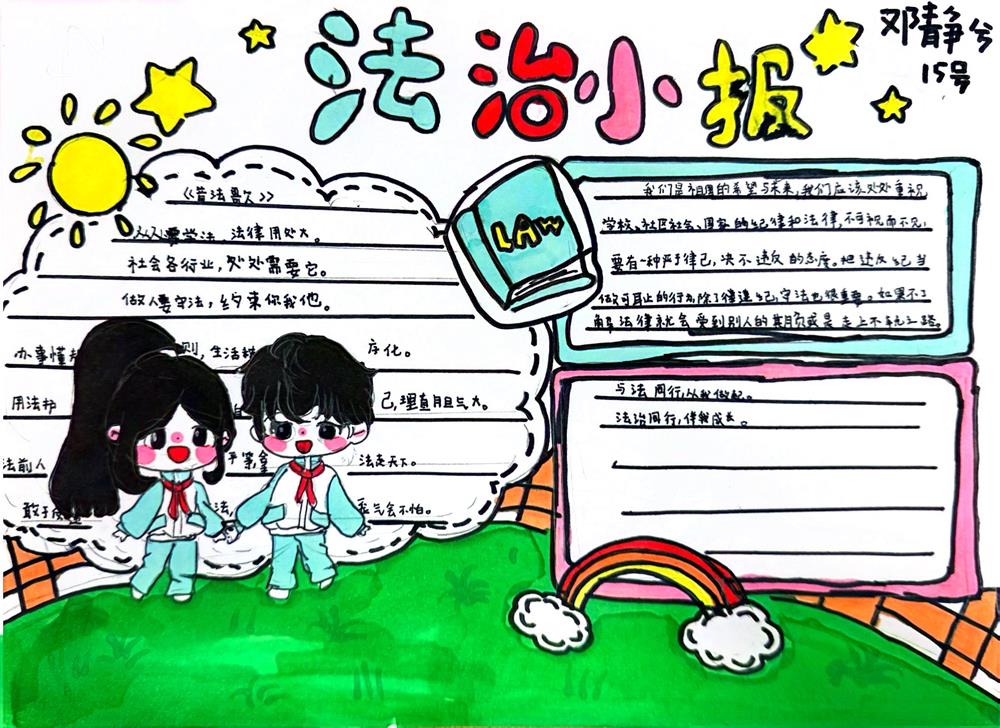 法治小报
邓静兮
15号
《普法歌》
人人要学法，法律用处大。
社会各行业，处处需要它。
做人要守法，约束你我他。
办事懂规则，生活 序化。
用法护 自己，理直且气大。
法前人 平等 法走天下。
敢于 法， 气会不怕。
LAW
我们是祖国的希望与未来，我们应该处处重视
学校、社区社会、国家的纪律和法律，不可视而不见，
要有一种严于律己，决不违反的态度。把违反纪当
做可耻的行为，除了律遵纪，守法也很重要。如果不了
解法律就会受到别人的欺负或是走上不归之路。
与法同行，从我做起。
法治同行，伴我成长。